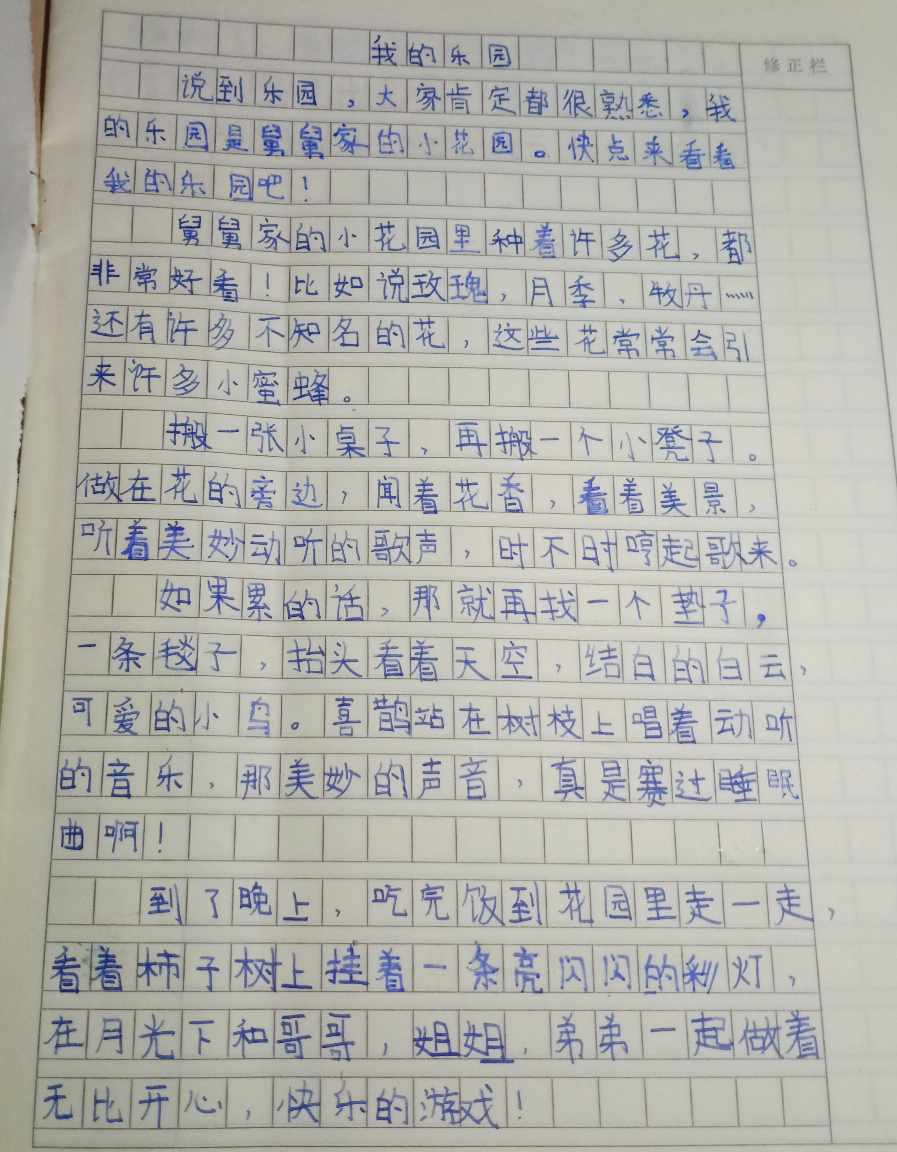 我的乐园
修正栏
说到乐园，大家肯定都很熟悉，我
的乐园是舅舅家的小花园。快点来看看
我的乐园吧！
舅舅家的小花园里种着许多花，都
非常好看！比如说玫瑰，月季、牧丹……
还有许多不知名的花，这些花常常会引
来许多小蜜蜂。
搬一张小桌子，再搬一个小凳子。
做在花的旁边，闻着花香，看着美景，
听着美妙动听的歌声，时不时哼起歌来。
如果累的话，那就再找一个垫子，
一条毯子，抬头看着天空，结白的白云，
可爱的小鸟。喜鹊站在树枝上唱着动听
的音乐，那美妙的声音，真是赛过睡眠
曲啊！
到了晚上，吃完饭到花园里走一走，
看着柿子树上挂着一条亮闪闪的彩灯，
在月光下和哥哥，姐姐，弟弟一起做着
无比开心，快乐的游戏！